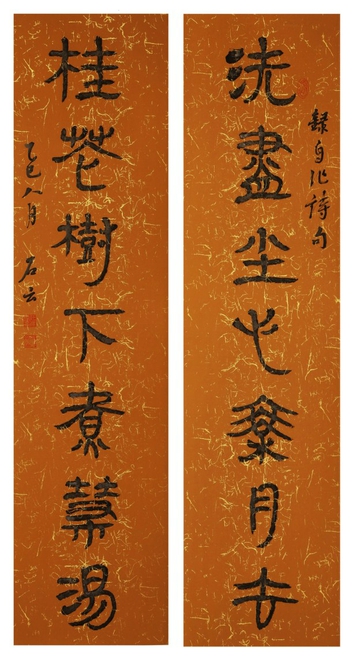 隸自作詩句
洗盡尘心椉月去
桂芲樹下煮湯
乙巳八月 石云